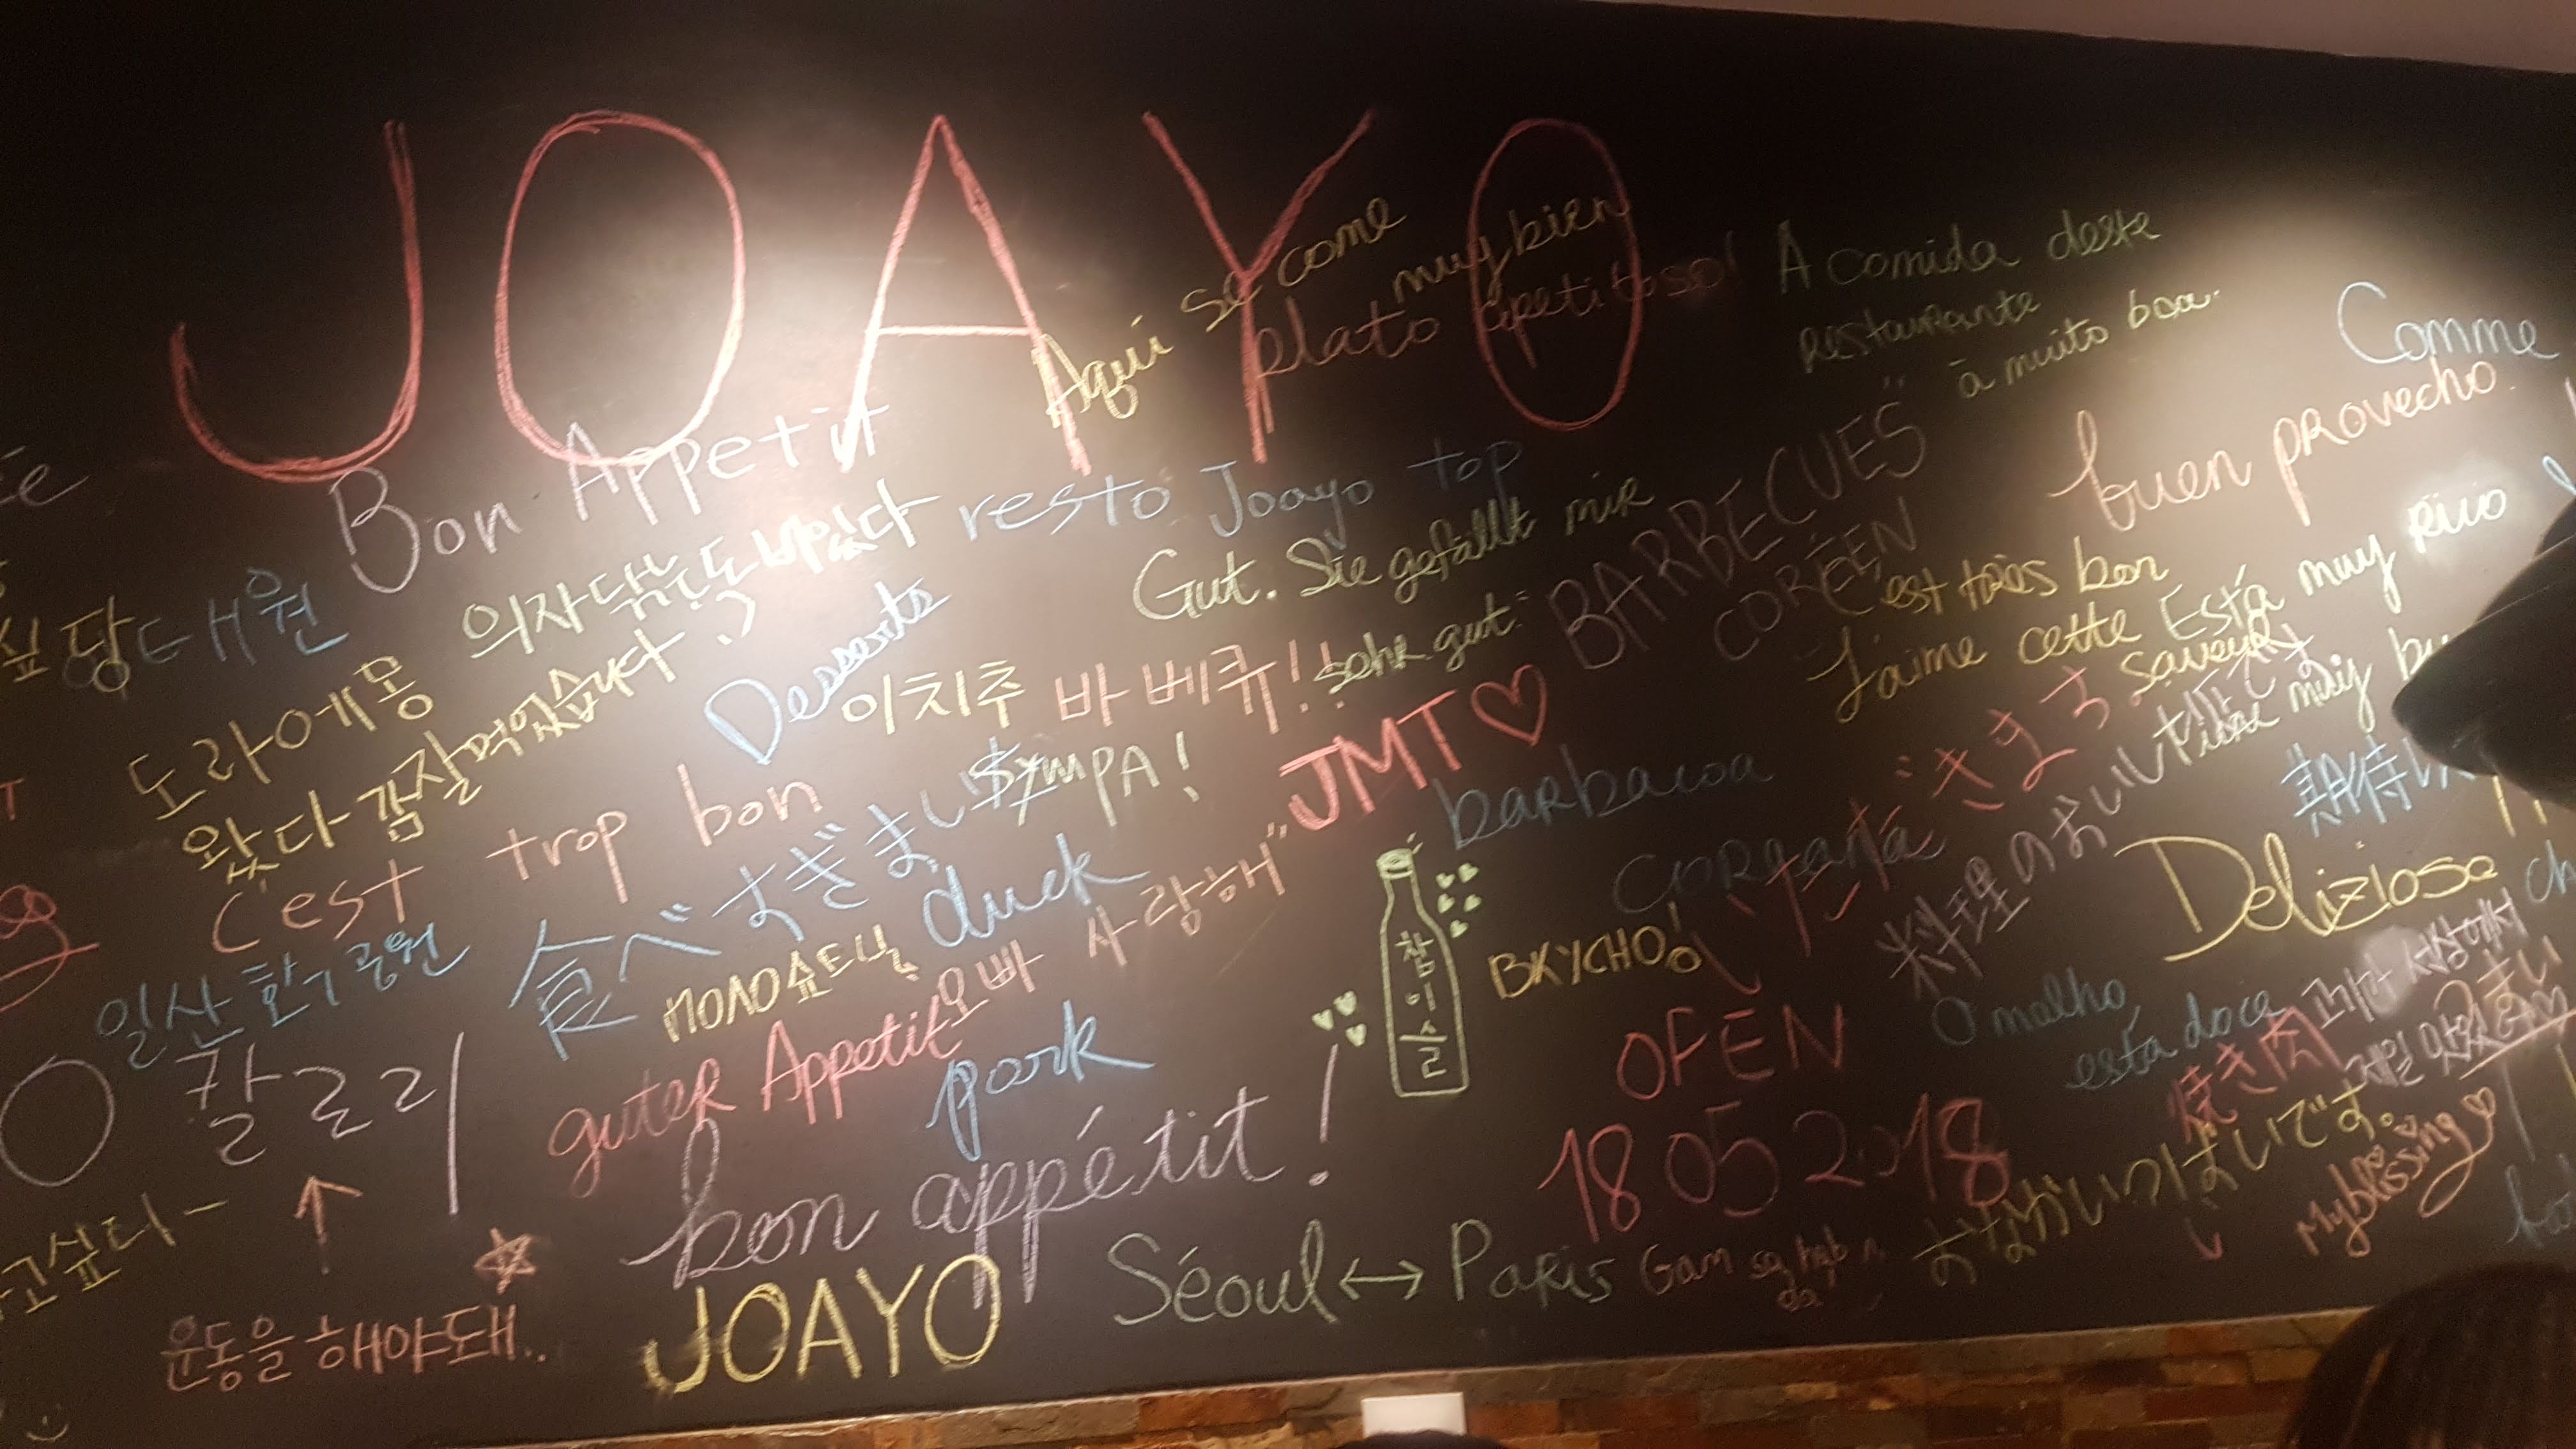 JOAYO
Aquí se come
muy bien
plato apetitoso!
A comida deste
restaurante
ā muito boa.
Comme
buen provecho.
Bon Appetit
resto Joayo top
Gut. Sie gefällt mir
sehr gut.
BARBECUES
CORÉEN
C'est très bon
J'aime cette
saveur
Está muy rico
muy
도라에몽
왔다 감 잘먹었습니다
Desserts
이치추 바베큐!!
SYMPA!
JMT♡
C'est trop bon
barbacoa
coreana
ごきまち
料理のおいし
期待
Deliziosa
食べすぎまし
duck
오빠 사랑해"
참이슬
BKYCHO!
일산 호수공원
칼로리
↑
guter Appetit
pork
OPEN
18 05 2018
O molho
está doce
焼き肉
세상에서
제일 맛있
bon appétit!
고싶다~
운동을 해야돼..
JOAYO
Séoul ↔ Paris
Gam sa hab ni
da
おなかいっぱいです。
My blissing♡